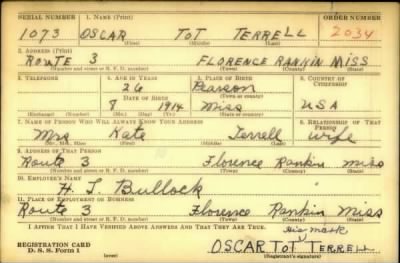 SERIAL NUMBER 1. NAME (Print) ORDER NUMBER
1073 OSCAR TOT TERRELL 2034
(First) (Middle) (Last)
2. ADDRESS (Print)
ROUTE 3 FLORENCE RANKIN MISS
(Number and street or R. F. D. number) (Town) (County) (State)
3. TELEPHONE 4. AGE IN YEARS 5. PLACE OF BIRTH 6. COUNTRY OF CITIZENSHIP
26 Pearson
DATE OF BIRTH (Town or county)
8 1914 Miss USA
(Exchange) (Number) (Mo.) (Day) (Yr.) (State or country)
7. NAME OF PERSON WHO WILL ALWAYS KNOW YOUR ADDRESS 8. RELATIONSHIP OF THAT PERSON
Mrs Kate Terrell Wife
(Mr., Mrs., Miss) (First) (Middle) (Last)
9. ADDRESS OF THAT PERSON
Route 3 Florence Rankin Miss
(Number and street or R. F. D. number) (Town) (County) (State)
10. EMPLOYER'S NAME
H. J. Bullock
11. PLACE OF EMPLOYMENT OR BUSINESS
Route 3 Florence Rankin Miss
(Number and street or R. F. D. number) (Town) (County) (State)
I AFFIRM THAT I HAVE VERIFIED ABOVE ANSWERS AND THAT THEY ARE TRUE.
His mark
REGISTRATION CARD OSCAR TOT TERRELL
D. S. S. Form 1 (over) (Registrant's signature)